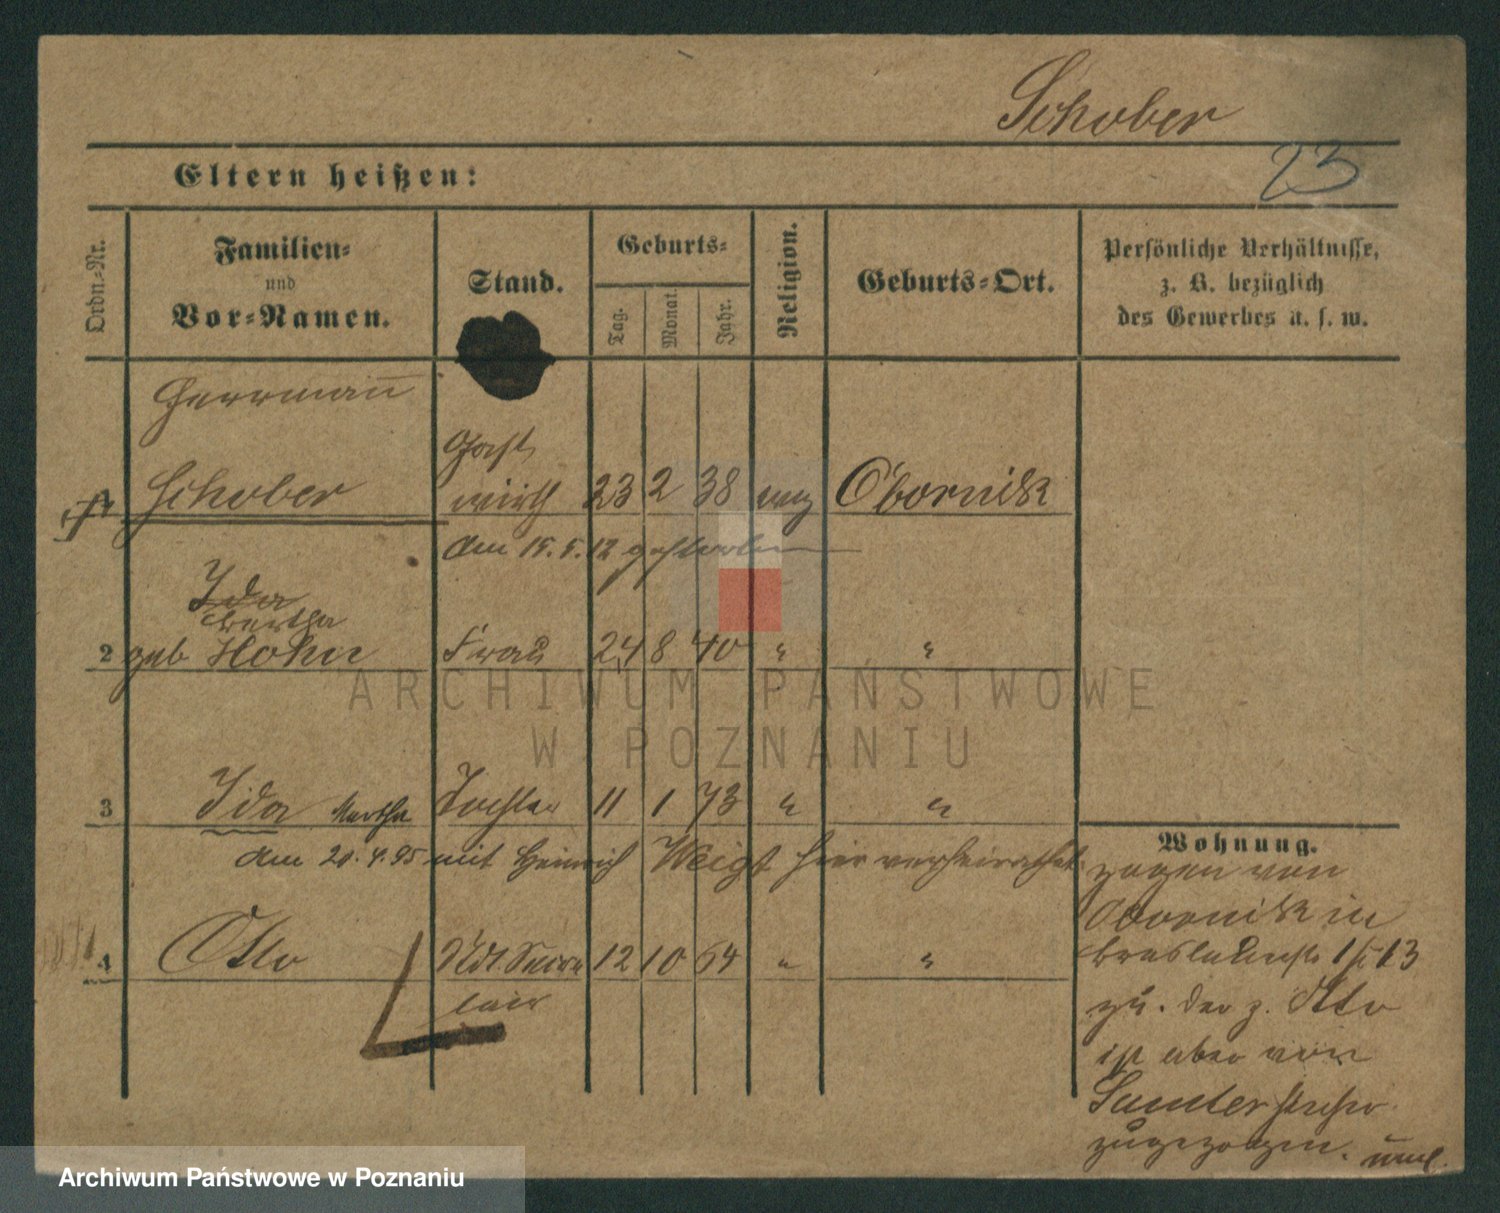 Schober
23
Eltern heißen:
Ordn.-Nr.
Familien-
und
Vor-Namen.
Stand.
Geburts-
Tag.
Monat.
Jahr.
Religion.
Geburts-Ort.
Persönliche Verhältnisse,
z. B. bezüglich
des Gewerbes u. s. w.
Herrmann
Schober Gast
wirth 23 2 38 evg Obornik
Am 15. 5. 12 gestorben
Ida
Bertha
2 geb Hohn Frau 24 8 40 " "
3 Ida Martha Tochter 11 1 73 " "
Am 20. 4. 95 mit Heinrich Weigt hier verheirathet
4 Otto 12 10 64 " "
Wohnung.
zogen von
Obornik in
13
zu. Der z. Otto
ist aber von
Samter
zugezogen.
ARCHIWUM PAŃSTWOWE
W POZNANIU
Archiwum Państwowe w Poznaniu